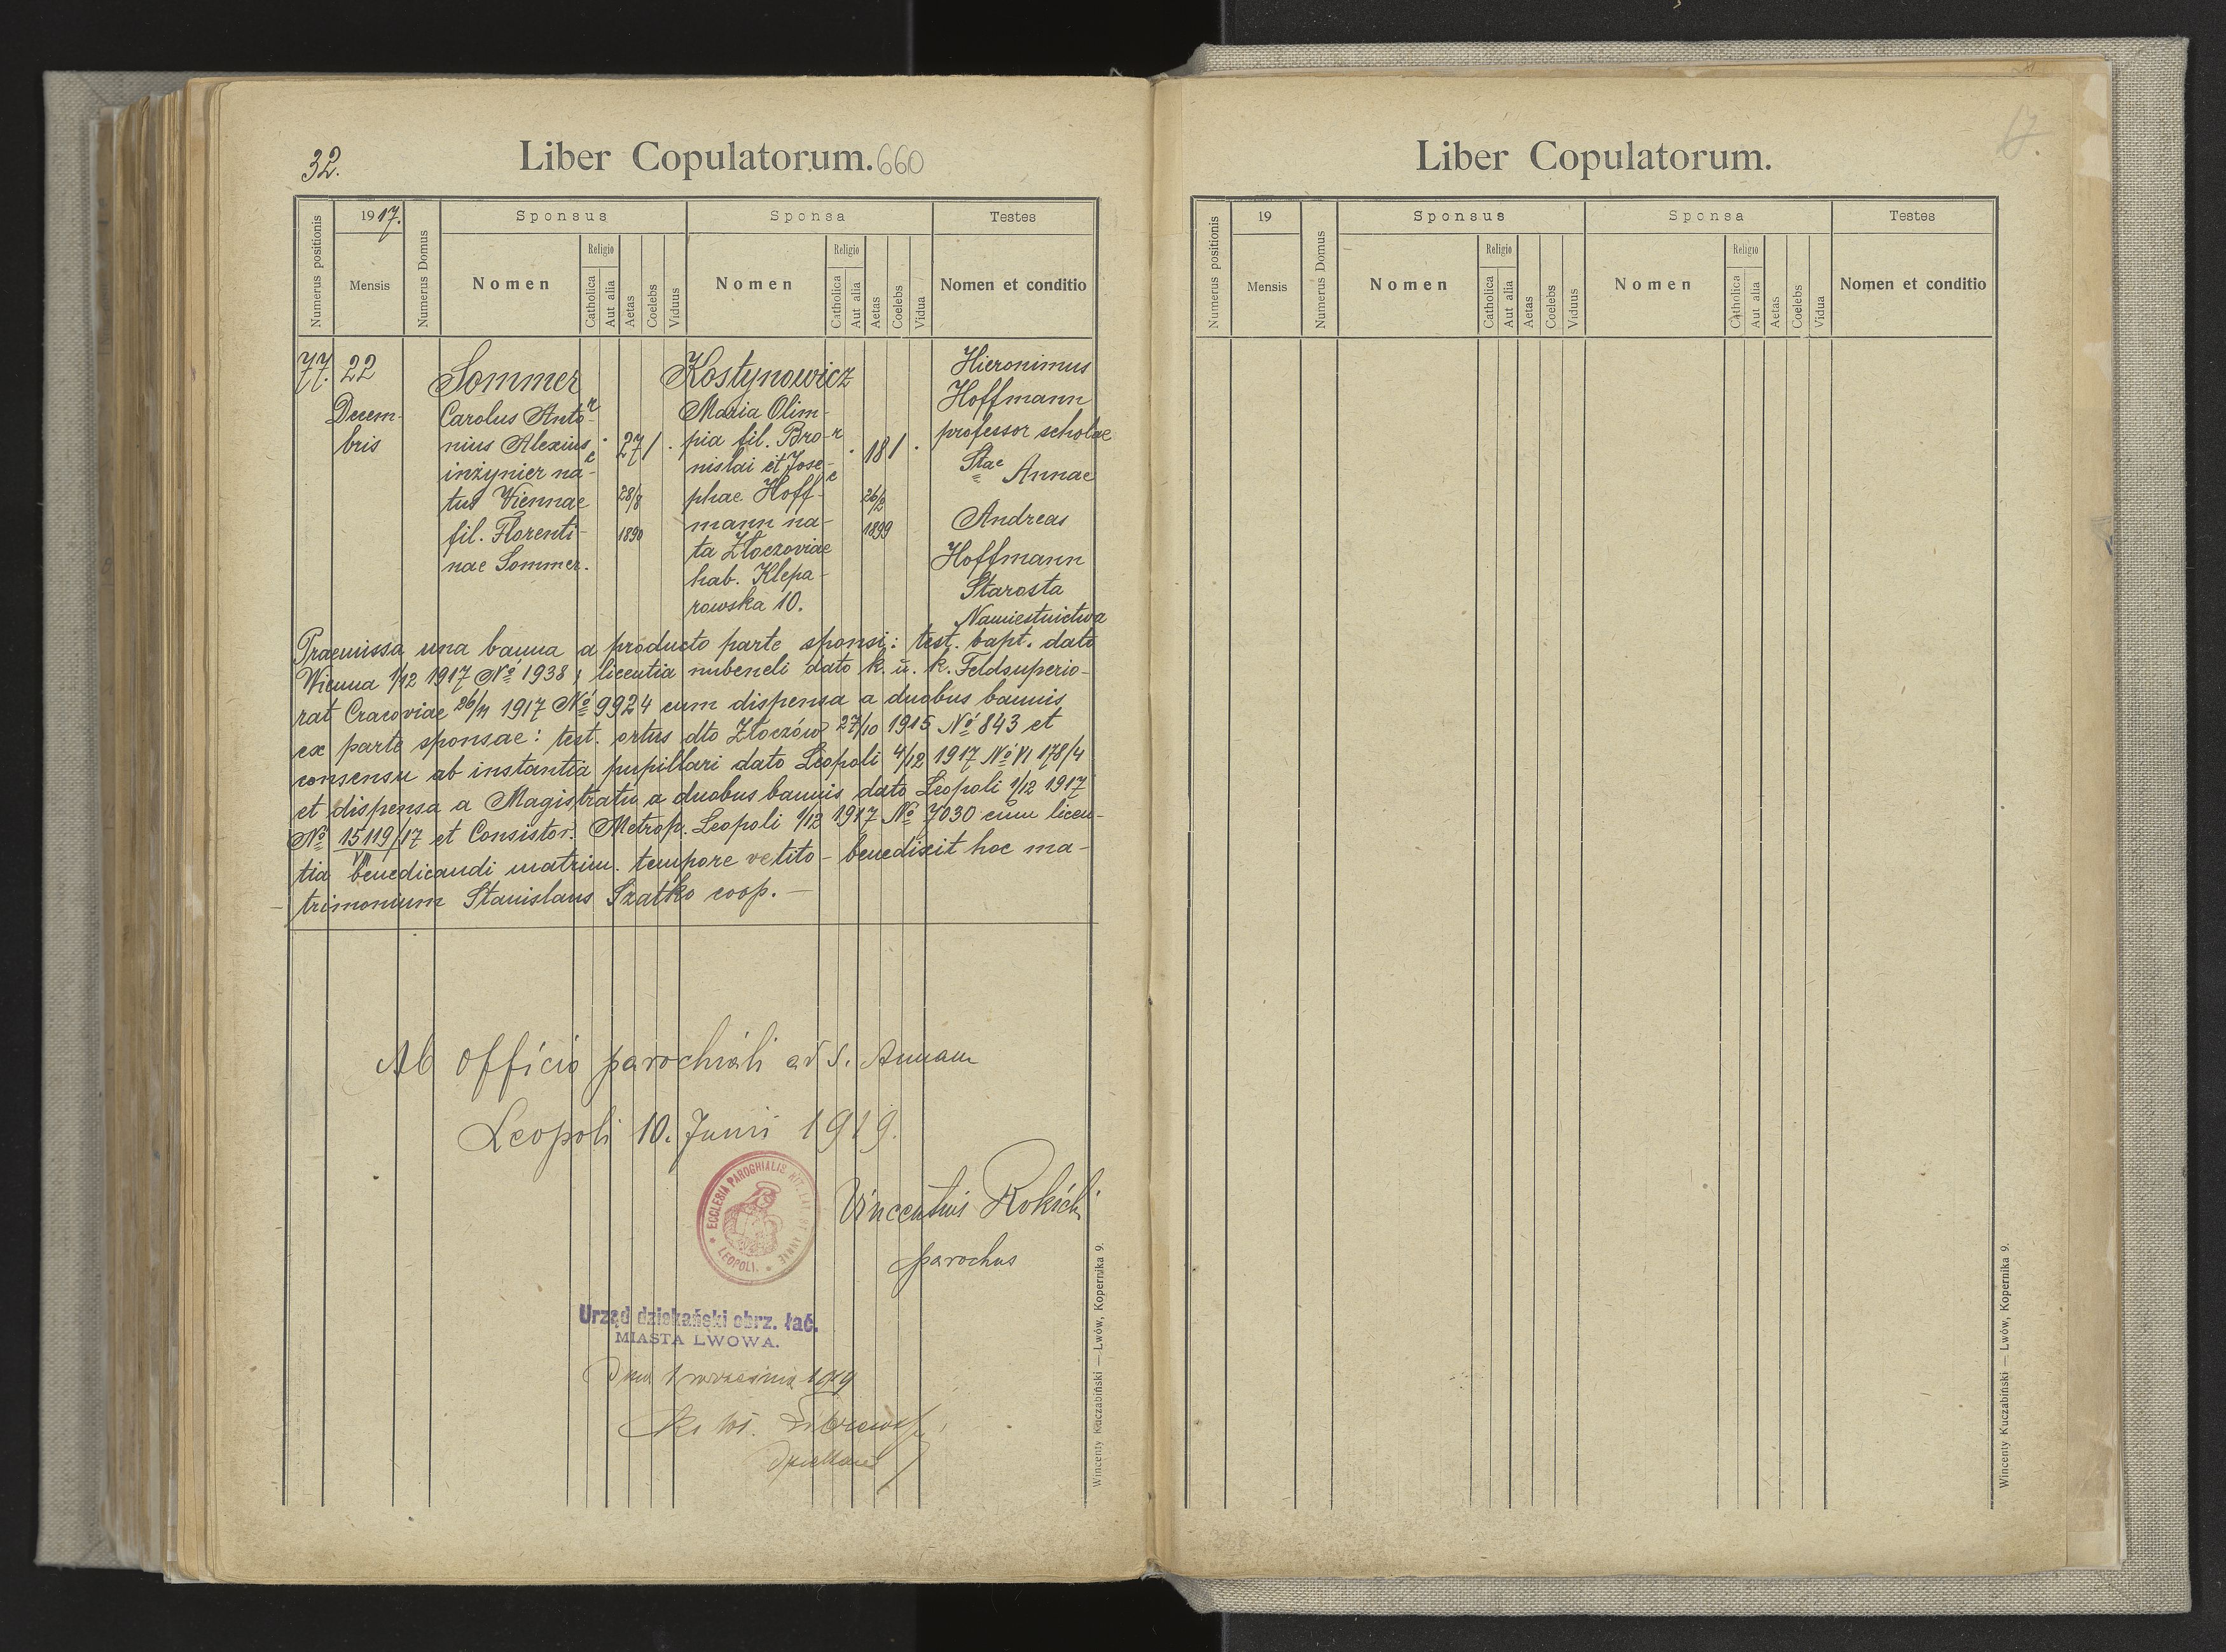 32.
Liber Copulatorum. 660
Numerus positionis
1917.
Mensis
Numerus Domus
Sponsus
Nomen
Religio
Catholica
Aut alia
Aetas
Coelebs
Viduus
Sponsa
Nomen
Religio
Catholica
Aut alia
Aetas
Coelebs
Vidua
Testes
Nomen et conditio
77. 22
Decem-
bris
Sommer
Carolus Anto-
nius Alexius
inżynier na-
tus Viennae
fil. Florenti-
nae Sommer.
27 /
28/8
1890
Kostynowicz
Maria Olim-
pia fil. Bro-
nislai et Jose-
phae Hoff-
mann na-
ta Złoczoviae
hab. Klepa-
rowska 10.
18 /
26/2
1899
Hieronimus
Hoffmann
professor scholae
Stae Annae
Andreas
Hoffmann
Starosta
Namiestnictwa
Praemissa una banna a producto parte sponsi: test. bapt. dato
Vienna 1/12 1917 No 1938; licentia nubendi dato k. u. k. Feldsuperio-
rat Cracoviae 26/11 1917 No 9924 cum dispensa a duobus bannis
ex parte sponsae: test. ortus dto Złoczów 27/10 1915 No 843 et
consensu ab instantia pupillari dato Leopoli 4/12 1917 No VI 178/4
et dispensa a Magistratu a duobus bannis dato Leopoli 1/12 1917
No 15119/17 et Consistor. Metrop. Leopoli 1/12 1917 No 7030 cum licen-
VII
tia benedicandi matrim. tempore vetito - benedixit hoc ma-
trimonium Stanislaus Szatko coop. —
Ab officio parochiali ad S. Annam
Leopoli 10. Junii 1919.
ECCLESIA PAROCHIALIS RIT. LAT. ST. ANNAE
LEOPOLI.
Vincentius Rokicki
parochus
Urząd dziekański obrz. łać.
MIASTA LWOWA.
Dnia 1 września 1919
dziekan
Wincenty Kuczabiński — Lwów, Kopernika 9.
17.
Liber Copulatorum.
Numerus positionis
19
Mensis
Numerus Domus
Sponsus
Nomen
Religio
Catholica
Aut alia
Aetas
Coelebs
Viduus
Sponsa
Nomen
Religio
Catholica
Aut alia
Aetas
Coelebs
Vidua
Testes
Nomen et conditio
Wincenty Kuczabiński — Lwów, Kopernika 9.